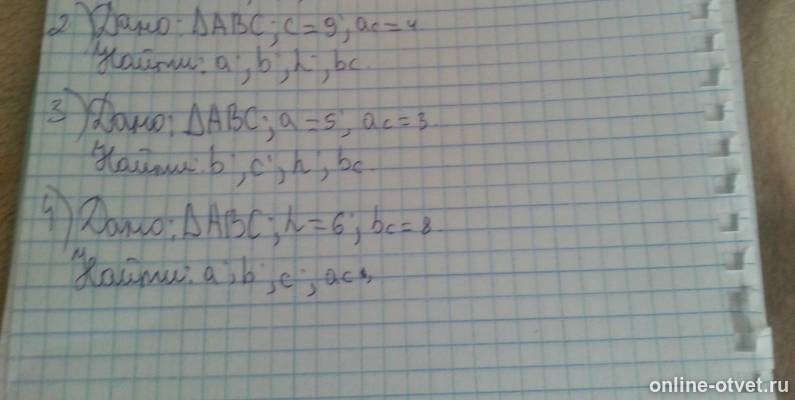 2) Дано: ΔABC; c=9; ac=4
Найти: a; b; h; bc.
3) Дано: ΔABC; a=5; ac=3.
Найти: b; c; h; bc.
4) Дано: ΔABC; h=6; bc=8.
Найти: a; b; c; ac.
online-otvet.ru